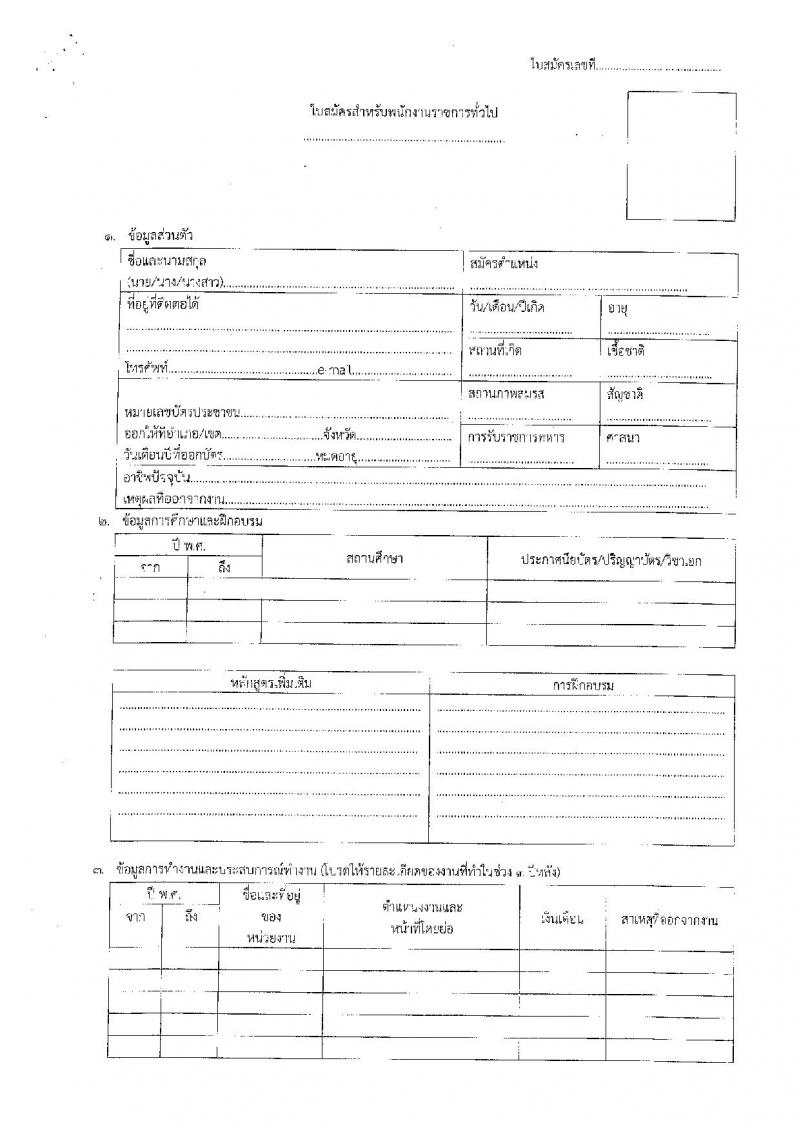 ใบสมัครเลขที่........................................
ใบสมัครสำหรับพนักงานราชการทั่วไป
............................................................
๑. ข้อมูลส่วนตัว
ชื่อและนามสกุล
(นาย/นาง/นางสาว)............................................................
สมัครตำแหน่ง
............................................................
ที่อยู่ที่ติดต่อได้
............................................................
............................................................
โทรศัพท์........................................e-mail..............................
วัน/เดือน/ปีเกิด
..............................
อายุ
..............................
สถานที่เกิด
..............................
เชื้อชาติ
..............................
หมายเลขบัตรประชาชน............................................................
ออกให้ที่อำเภอ/เขต..............................จังหวัด..............................
วันเดือนปีที่ออกบัตร..............................หมดอายุ..............................
สถานภาพสมรส
..............................
สัญชาติ
..............................
การรับราชการทหาร
..............................
ศาสนา
..............................
อาชีพปัจจุบัน............................................................
เหตุผลที่ออกจากงาน............................................................
๒. ข้อมูลการศึกษาและฝึกอบรม
ปี พ.ศ.
จาก ถึง
สถานศึกษา
ประกาศนียบัตร/ปริญญาบัตร/วิชาเอก
หลักสูตรเพิ่มเติม
การฝึกอบรม
๓. ข้อมูลการทำงานและประสบการณ์ทำงาน (โปรดให้รายละเอียดของงานที่ทำในช่วง ๓ ปีหลัง)
ปี พ.ศ.
จาก ถึง
ชื่อและที่อยู่
ของ
หน่วยงาน
ตำแหน่งงานและ
หน้าที่โดยย่อ
เงินเดือน
สาเหตุที่ออกจากงาน